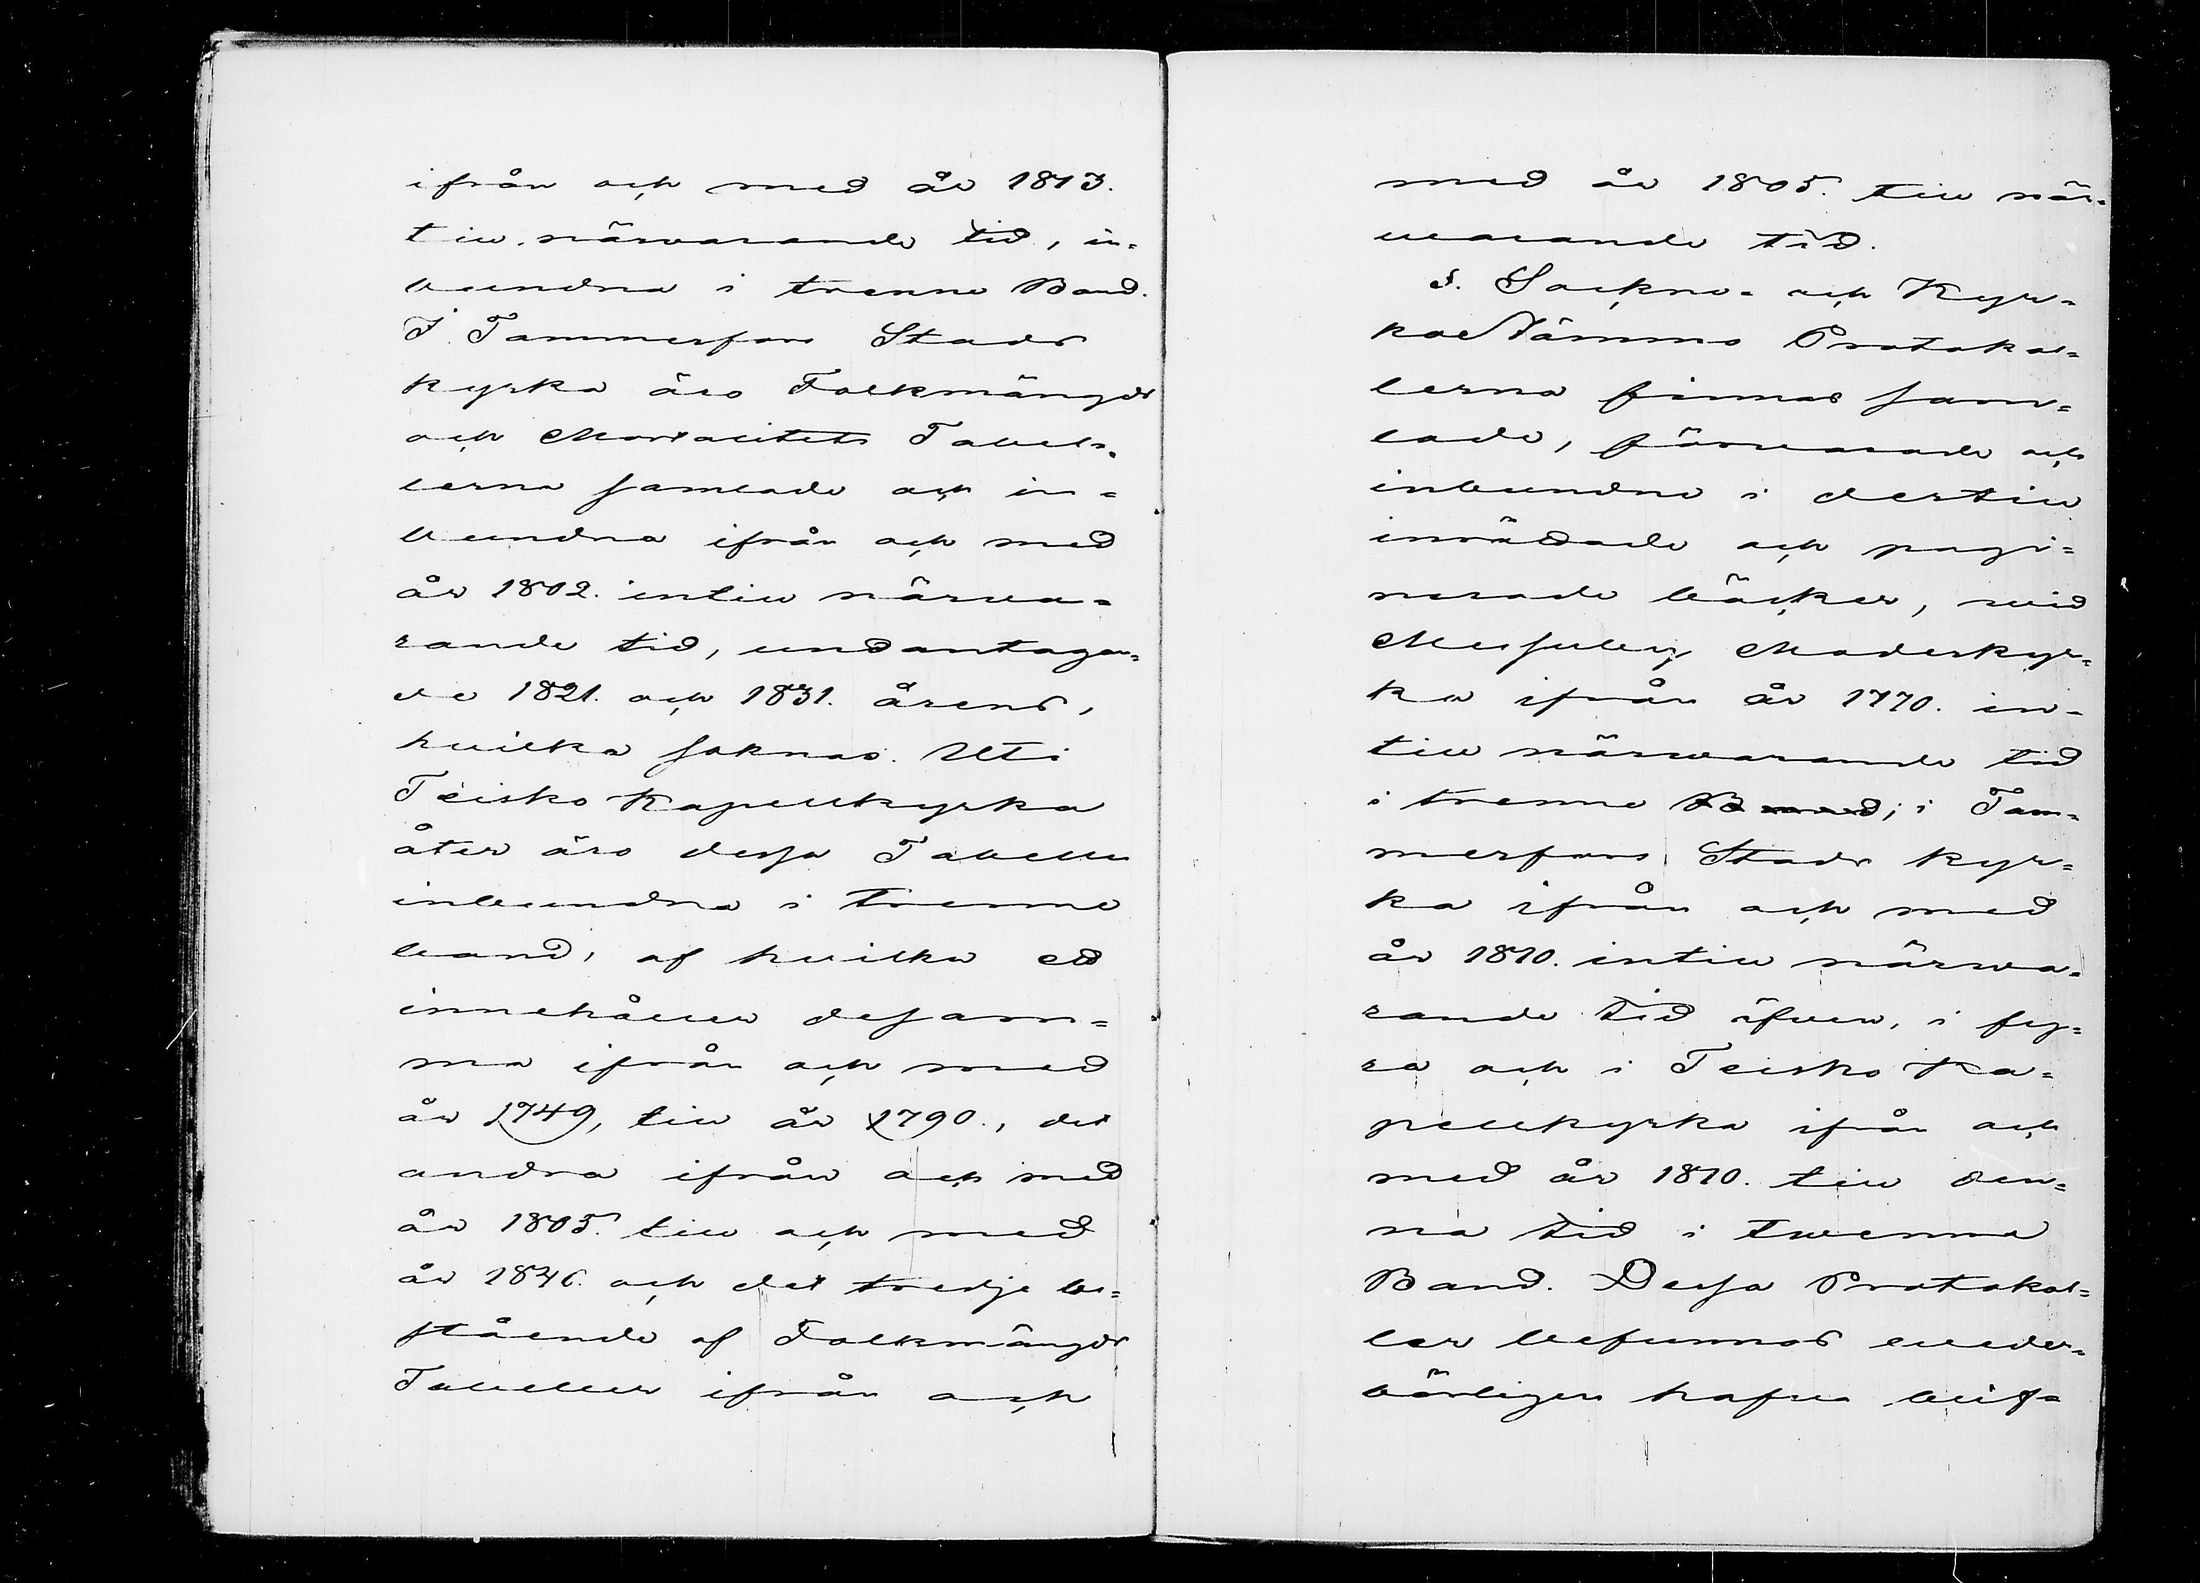 ifrån och med år 1813.
till närvarande tid, in=
bundna i trenne Band.
I Tammerfors Stads
kyrka äro Folkmängds
och Mortalitets Tabel=
lerna samlade och in=
bundna ifrån och med
år 1802. intill närva=
rande tid, undantagan=
de 1821. och 1831. årens,
hvilka saknas. Uti
Teisko Kapellkyrka
åter äro dessa Tabeller
inbundna i trenne
band, af hvilka ett
innehåller desam=
ma ifrån och med
år 1749, till år 1790., det
andra ifrån och med
år 1805. till och med
år 1846. och det tredje be=
stående af Folkmängds
Tabeller ifrån och
med år 1805. till när=
varande tid.
§. Sockne= och Kyr=
koe Nämns Protokol=
lerna finnas sam=
lade, förvarade och
inbundna i dertill
inrättade och pagi=
nerade böcker, uid
Messuby Moderkyr=
ka ifrån år 1770. in=
till närvarande tid
i trenne Band; i Tam=
merfors Stads kyr=
ka ifrån och med
år 1810. intill närva=
rande tid äfven, i fy=
ra och i Teisko Ka=
pellkyrka ifrån och
med år 1810. till den=
na tid i tvenne
Band. Dessa Protokol=
ler befunnos veder=
börligen hafva blif=